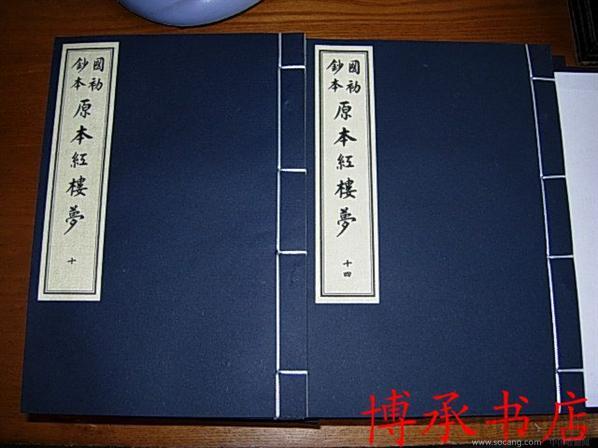 國初
鈔本
原本紅樓夢
十
國初
鈔本
原本紅樓夢
十四
博承书店
www.socang.com